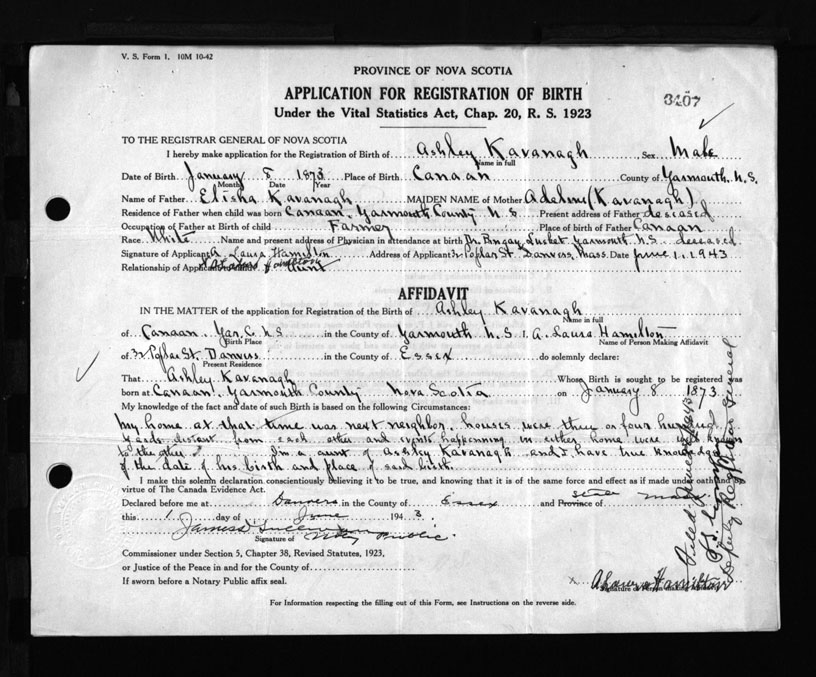 V. S. Form 1. 10M 10-42
PROVINCE OF NOVA SCOTIA
APPLICATION FOR REGISTRATION OF BIRTH
3407
Under the Vital Statistics Act, Chap. 20, R. S. 1923
TO THE REGISTRAR GENERAL OF NOVA SCOTIA
I hereby make application for the Registration of Birth of Ashley Kavanagh Sex Male
Name in full
Date of Birth January 8 1873 Place of Birth Canaan County of Yarmouth. N. S.
Month Date Year
Name of Father Elisha Kavanagh MAIDEN NAME of Mother (Kavanagh)
Residence of Father when child was born Canaan, Yarmouth County N. S Present address of Father deceased
Occupation of Father at Birth of child Farmer Place of birth of Father Canaan
Race White Name and present address of Physician in attendance at birth Dr. Tusket Yarmouth N. S. deceased
Signature of Applicant A. Laura Hamilton Address of Applicant 32 Poplar St. Danvers, Mass. Date June 1, 1943
Relationship of Applicant Aunt
AFFIDAVIT
IN THE MATTER of the application for Registration of the Birth of Ashley Kavanagh
Name in full
of Canaan. Yar. C. N S in the County of Yarmouth N. S I, A. Laura Hamilton
Birth Place Name of Person Making Affidavit
of 32 Poplar St. Danvers in the County of Essex do solemnly declare:
Present Residence
That Ashley Kavanagh Whose Birth is sought to be registered was
born at Canaan Yarmouth County Nova Scotia on January 8 1873
My knowledge of the fact and date of such Birth is based on the following Circumstances:
My home at that time was next neighbor. houses were three or four hundred
yards distant from each other and events happening in either home were well known
to the other. I'm a aunt of Ashley Kavanagh and I have true knowledge
of the date of his birth and place of said birth.
I make this solemn declaration conscientiously believing it to be true, and knowing that it is of the same force and effect as if made under oath and by
virtue of The Canada Evidence Act.
Declared before me at Danvers in the County of Essex and Province of State Mass
this 1 day of June 1943.
Notary Public.
Signature of
Commissioner under Section 5, Chapter 38, Revised Statutes, 1923,
or Justice of the Peace in and for the County of
If sworn before a Notary Public affix seal.
x A Laura Hamilton
Signature of Person making Affidavit
For Information respecting the filling out of this Form, see Instructions on the reverse side.
Filed June 1943
Deputy Registrar General